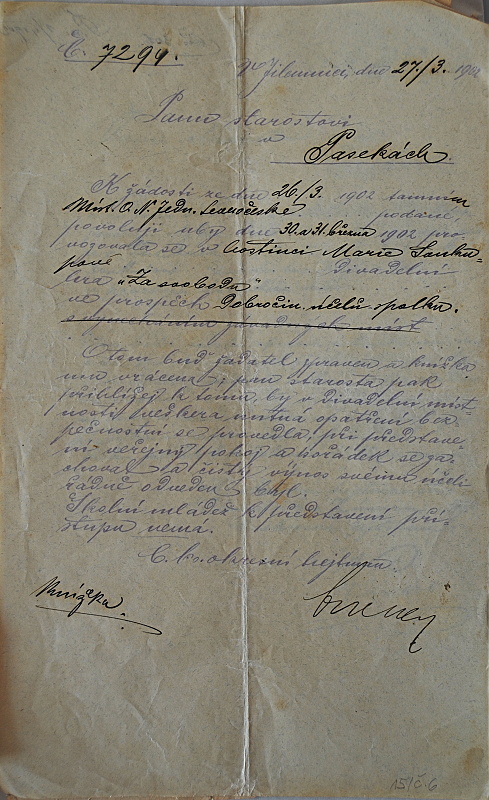 Č. 7299.
V Jilemnici, dne 27/3. 1902
Panu starostovi
v
Pasekách.
K žádosti ze dne 26/3. 1902 tamním
Míst. O. N. Jedn. Severočeské podané,
povoluji aby dne 30. a 31. března 1902 pro-
vozovala se v hostinci Marie
pové divadelní
hra „Za svobodu"
ve prospěch Dobročin. účelů spolku.
s vyloučením
O tom buď žadatel zpraven a knížka
mu vrácena; pan starosta pak
přihlížej k tomu, by v divadelní míst-
nosti veškerá nutná opatření bez-
pečnostní se provedla, při představe-
ní veřejný pokoj a pořádek se za-
choval a čistý výnos svému účeli
řádně odveden byl.
Školní mládež k představení pří-
stupu nemá.
C. k. okresní hejtman.
Knížka
15/č. 6